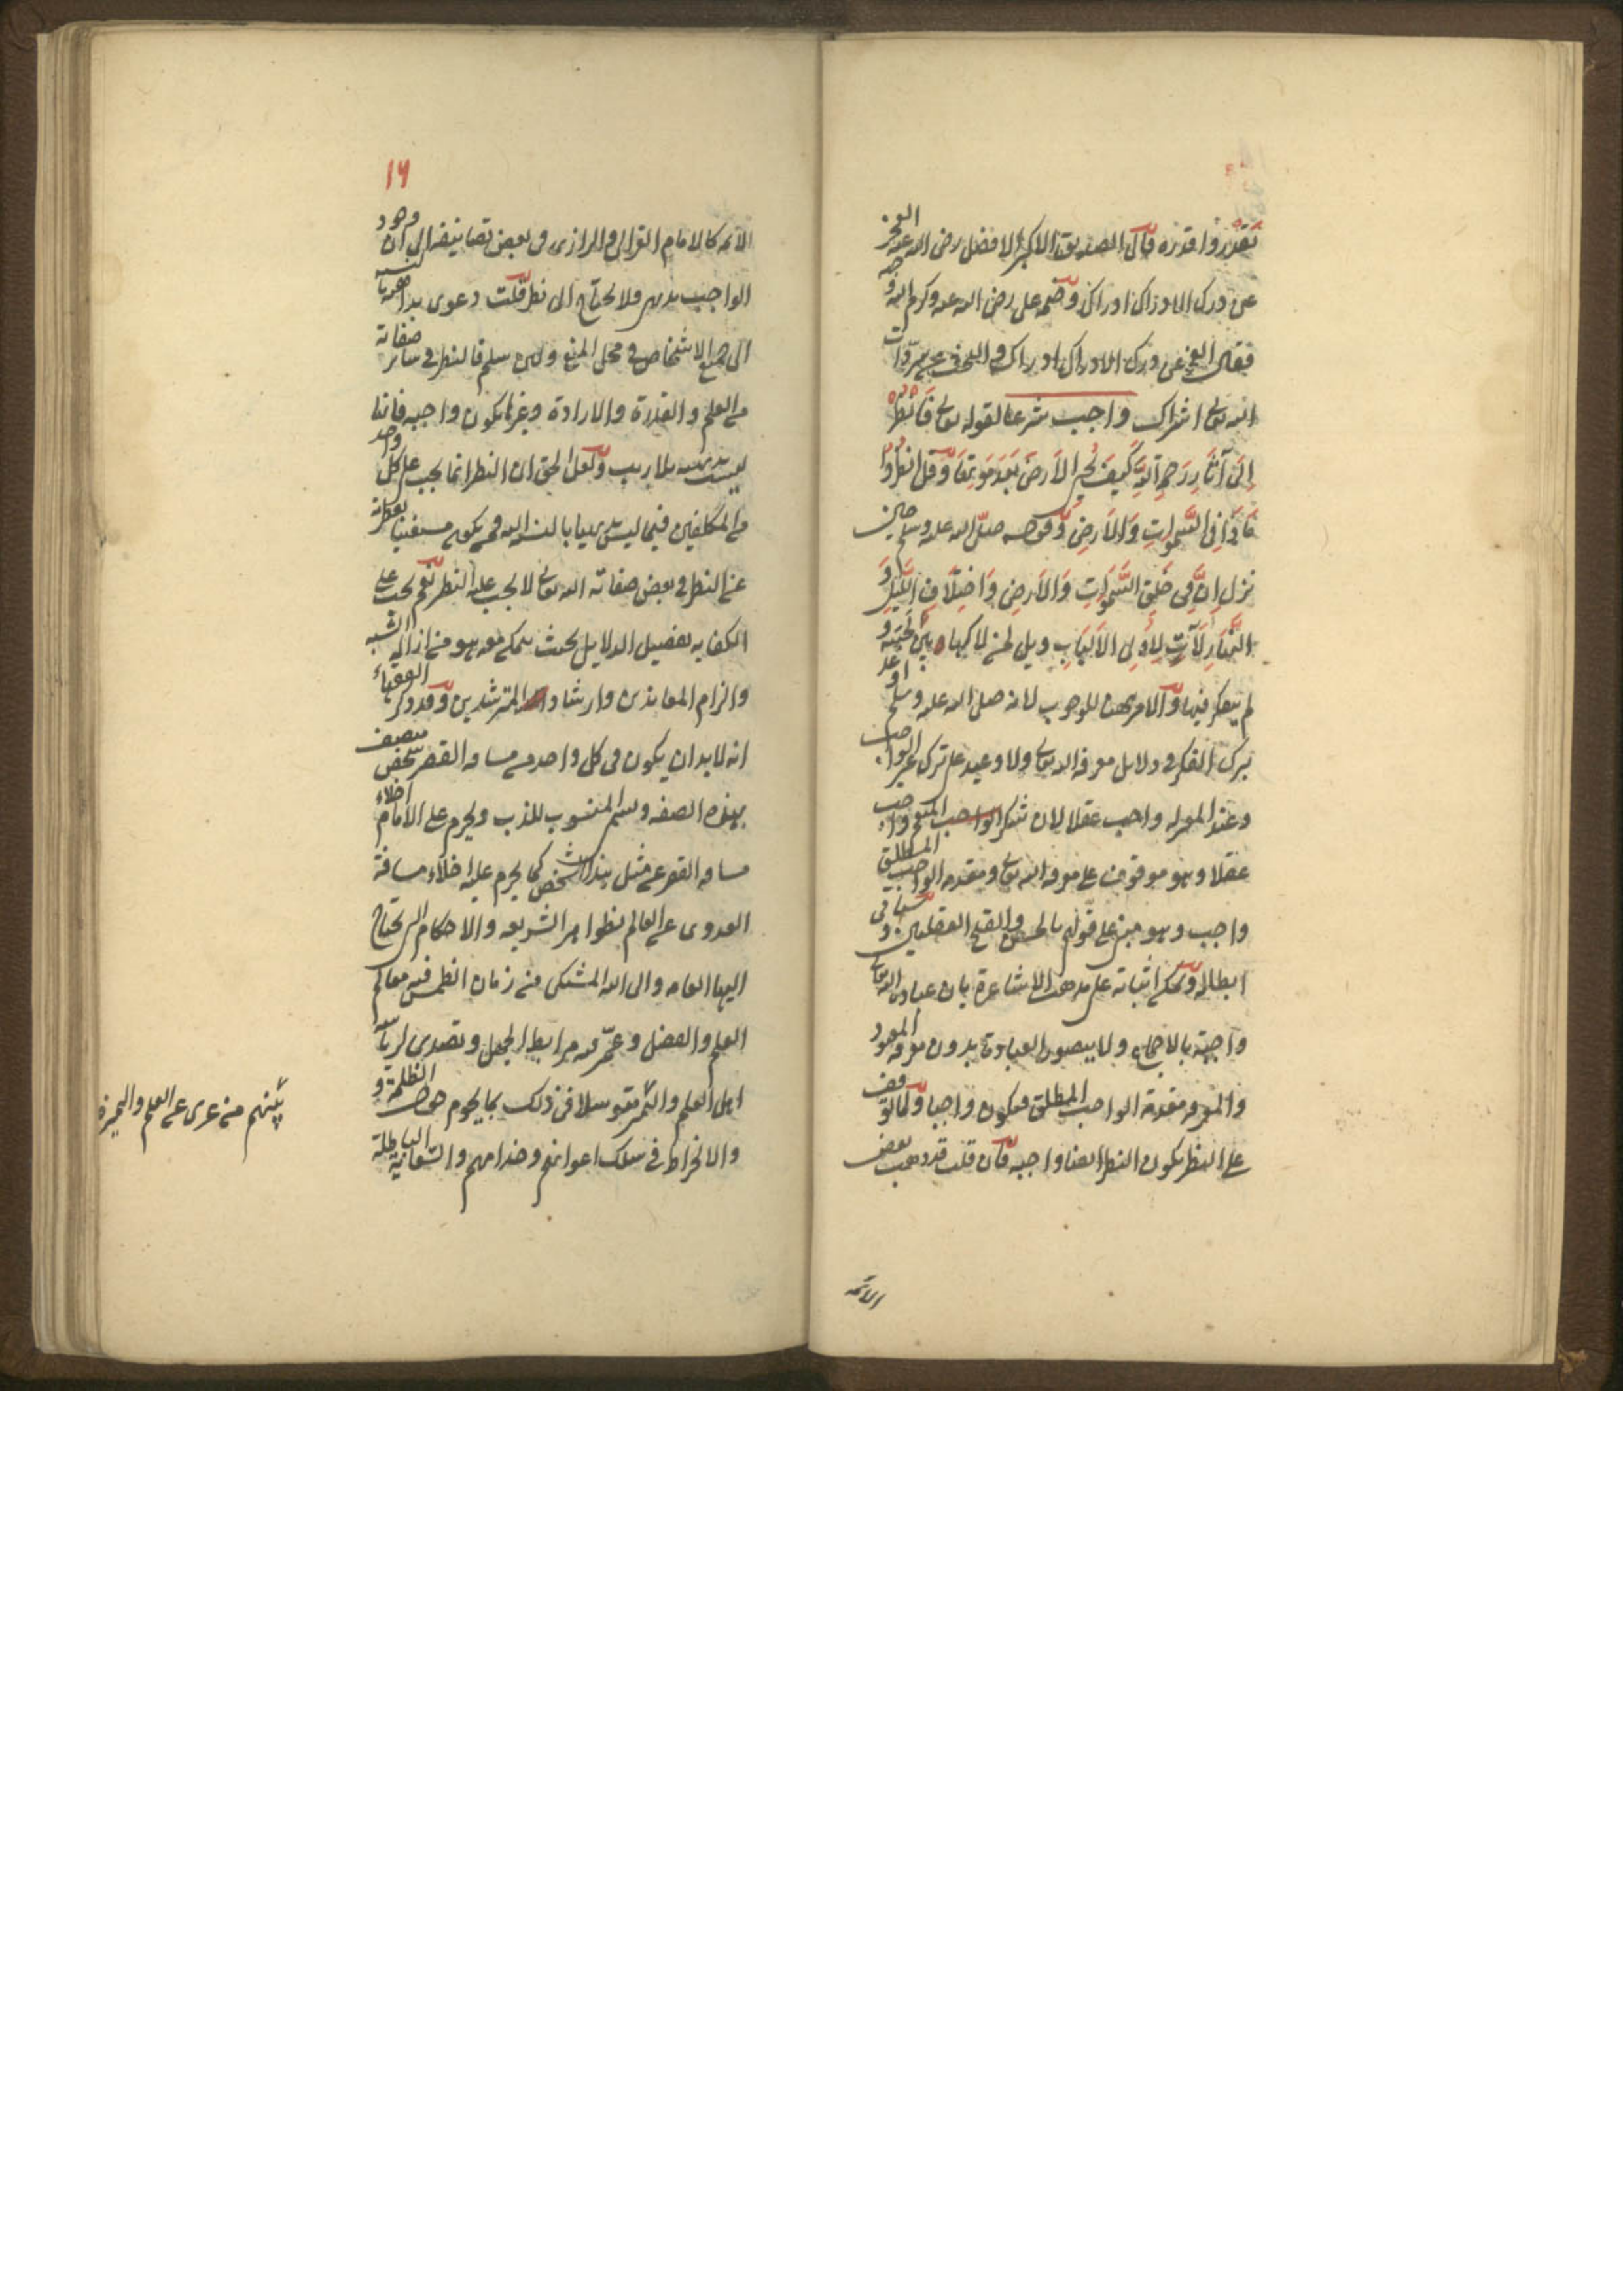 تقدروا قدره قال الصديق الاكبر الافضل رضي الله عنه العجز
عن درك الادراك ادراك وضمنه علي رضي الله عنه وكرم الله وجهه
فقال العجز عن درك الادراك ادراك والبحث عن سر ذات
الله تعالى اشراك واجب شرعا لقوله تعالى فانظر
الى آثار رحمة الله كيف يحي الارض بعد موتها وقل انظروا
ماذا في السموات والارض وقوله صلى الله عليه وسلم حين
نزل ان في خلق السموات والارض واختلاف الليل و
النهار لآيات لاولي الالباب ويل لمن لاكها بين لحييه و
لم يتفكر فيها والامر ههنا للوجوب لانه صلى الله عليه وسلم اوعد
بترك الفكر في دلائل معرفة الله تعالى ولا وعيد على ترك غير الواجب
وعند المعتزلة واجب عقلا لان شكر المنعم واجب
عقلا وهو موقوف على معرفة الله تعالى ومقدمة الواجب المطلق
واجب وهو مبني على قولهم بالحسن والقبح العقليين و سيأتي
ابطاله ويمكن اثباته على مذهب الاشاعرة بان عبادة الله تعالى
واجبة بالاجماع ولا يتصور العبادة بدون معرفة المعبود
والمعرفة مقدمة الواجب المطلق فيكون واجبا ولما توقف
على النظر يكون النظر ايضا واجبا فان قلت قد ذهب بعض
الائمة
١٦
الائمة كالامام الغزالي والرازي في بعض تصانيفه الى ان وجود
الواجب بديهي ولا يحتاج الى نظر قلت دعوى بداهته بالنسبة
الى جميع الاشخاص في محل المنع ولئن سلم فالنظر في سائر صفاته
من العلم والقدرة والارادة وغيرها يكون واجبه فانها
ليست بديهية بلا ريب ولعل الحق ان النظر انما يجب على كل واحد
من المكلفين فيما ليس بديهيا بالنسبة اليه فمن يكون مستغنيا بفطرته
عن النظر في بعض صفات الله تعالى لا يجب عليه النظر نعم يجب على
الكفاية تفصيل الدلايل بحيث يتمكن معه من ازالة الشبه
والزام المعاندين وارشاد المترشدين وقد ذكر الفقهاء
انه لابد ان يكون في كل واحد من مسافة القصر شخص متصف
بهذه الصفة ويسمى المنصوب للذب ويحرم على الامام اخلاء
مسافة القصر عن مثل هذا الشخص كما يحرم عليه اخلاء مسافة
العدوى عن العالم بظواهر الشريعة والاحكام التي يحتاج
اليها العامة والى الله المشتكى من زمان انطمس فيه معالم
العلم والفضل وعمر فيه مرابط الجهل وتصدى لرياسة
اهل العلم والتمييز بينهم من عرى عن العلم والتميز
متوسلا في ذلك بما يحوم حول الظلمة و
والانخراط في سلك اعوانهم وخدامهم والسعاية الباطلة